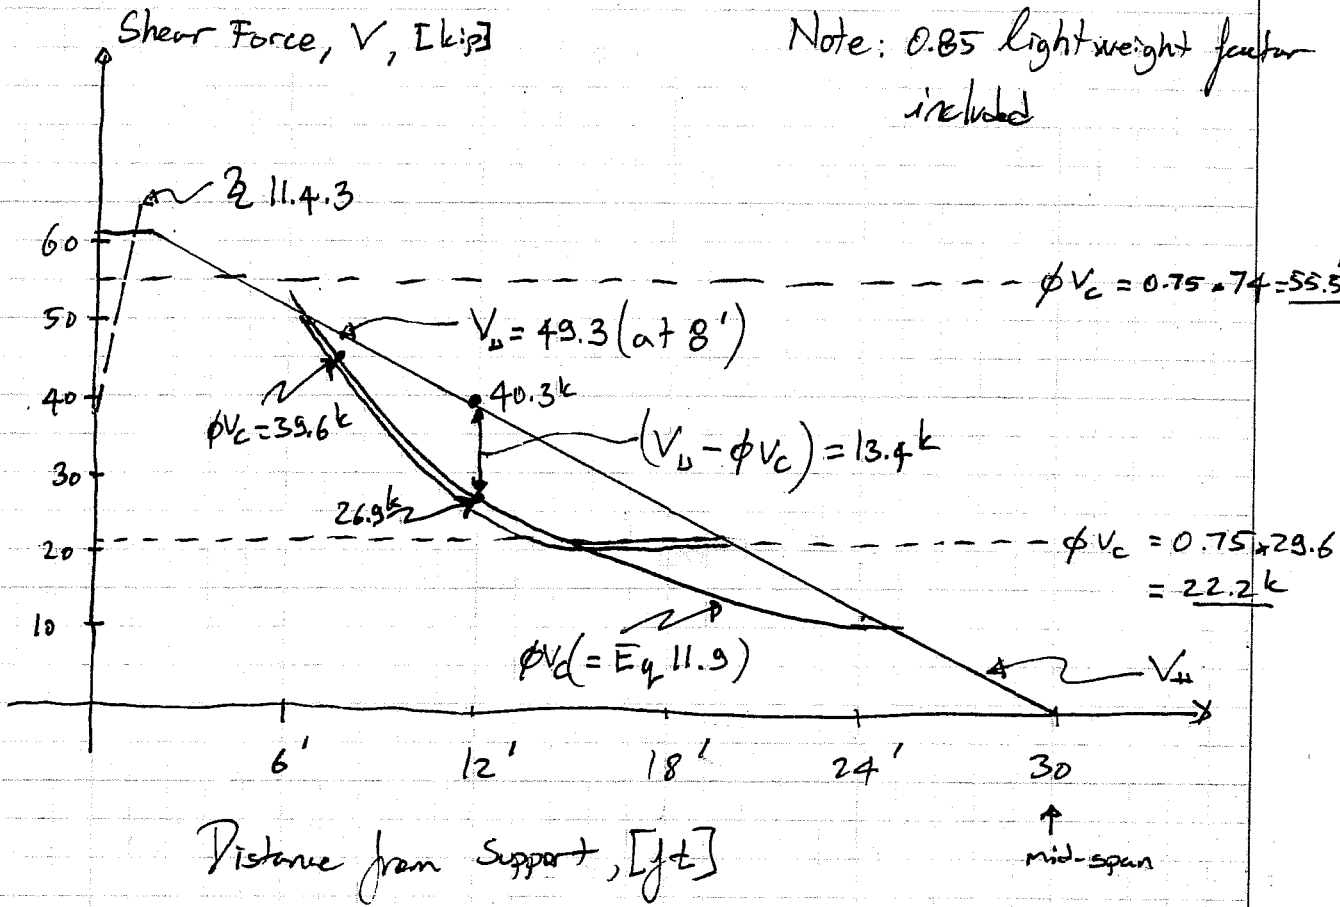 Shear Force, V, [kip]
Note: 0.85 lightweight factor
included
11.4.3
60
50
40
30
20
10
ϕ Vc = 0.75 * 74 = 55.5
Vu = 49.3 (at 8')
40.3k
ϕVc = 39.6k
(Vu - ϕVc) = 13.4k
26.9k
ϕ Vc = 0.75 x 29.6
= 22.2k
ϕVc (= Eq 11.9)
Vu
6'
12'
18'
24'
30
mid-span
Distance from Support, [ft]